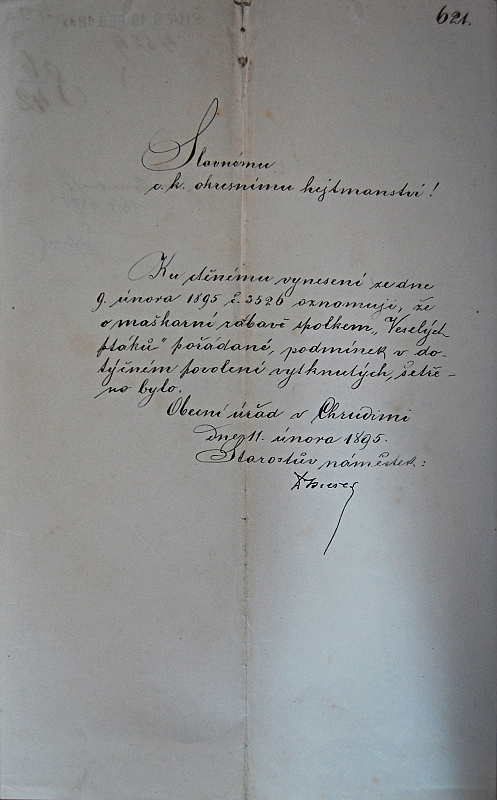 621.
Slavnému
c. k. okresnímu hejtmanství!
Ku ctěnému vynesení ze dne
9. února 1895 č. 3526 oznamuji, že
o maškarní zábavě spolkem „Veselých
ptáků" pořádané, podmínek v do-
týčném povolení vytknutých, šetře-
no bylo.
Obecní úřad v Chrudimi
Dne 11. února 1895.
Starostův náměstek: